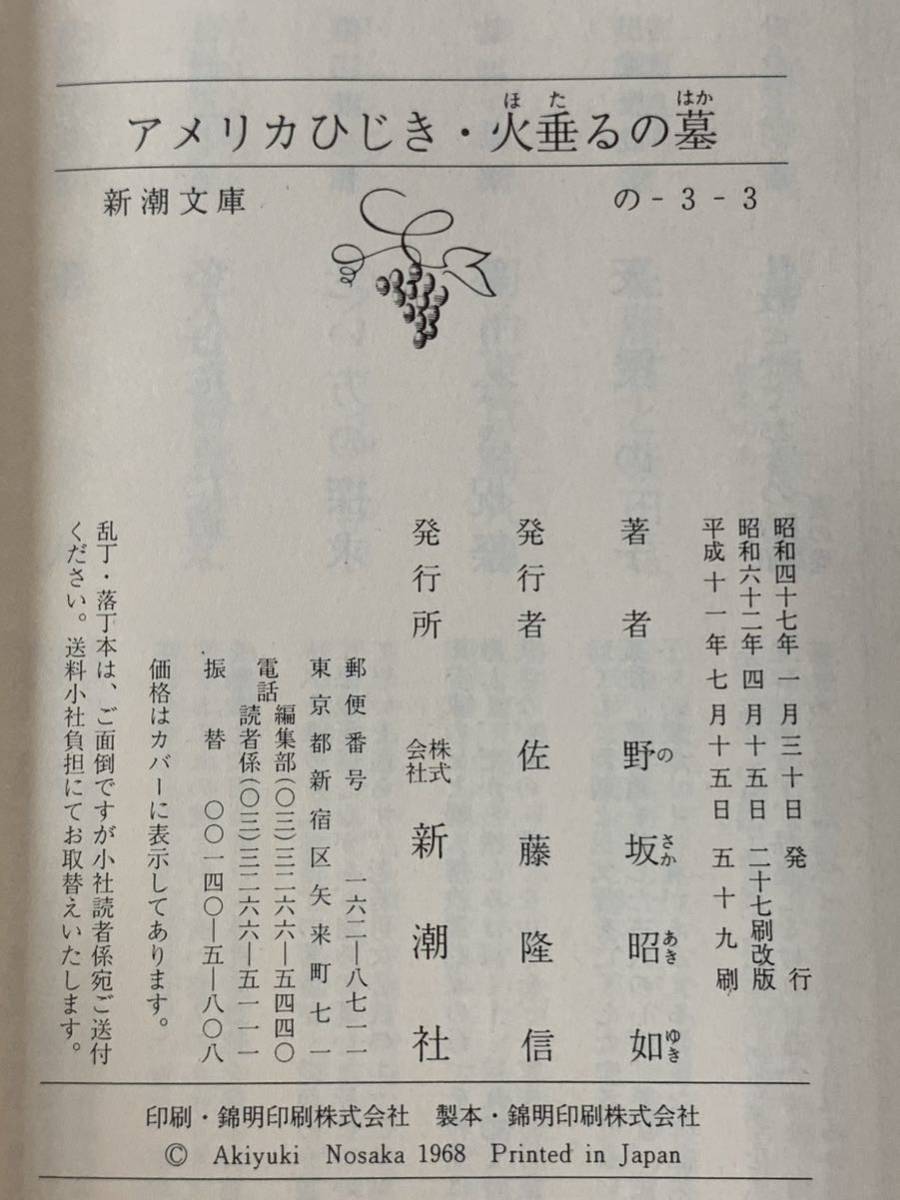 アメリカひじき・火垂るの墓
ほた
はか
新潮文庫
の-3-3
昭和四十七年一月三十日発行
昭和六十二年四月十五日二十七刷改版
平成十一年七月十五日五十九刷
著者 野坂昭如
のさかあきゆき
発行者 佐藤隆信
発行所 株式会社 新潮社
郵便番号 一六二―八七一一
東京都新宿区矢来町七一
電話 編集部(〇三)三二六六―五四四〇
読者係(〇三)三二六六―五一一一
振替 〇〇一四〇―五―八〇八
価格はカバーに表示してあります。
乱丁・落丁本は、ご面倒ですが小社読者係宛ご送付
ください。送料小社負担にてお取替えいたします。
印刷・錦明印刷株式会社 製本・錦明印刷株式会社
© Akiyuki Nosaka 1968 Printed in Japan